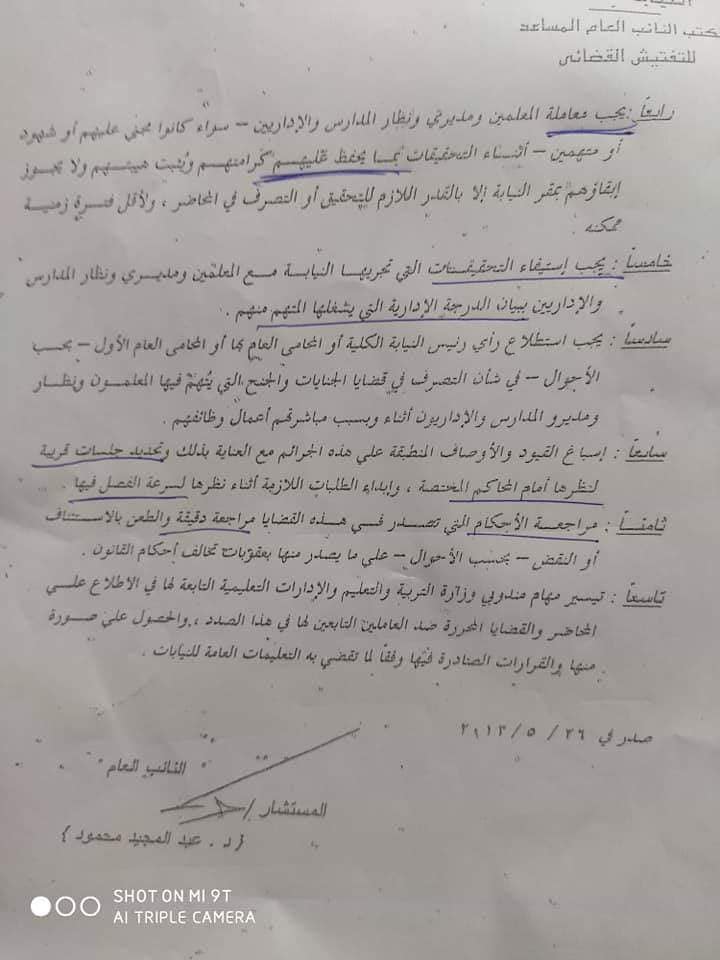 كتب النائب العام المساعد
للتفتيش القضائى
رابعاً : يجب معاملة المعلمين ومديري ونظار المدارس والإداريين – سواء كانوا مجنى عليهم أو شهود
أو متهمين – أثناء التحقيقات بما يحفظ عليهم كرامتهم ويُثبت هيبتهم ولا يجوز
إبقاؤهم بمقر النيابة إلا بالقدر اللازم للتحقيق أو التصرف في المحاضر ، ولأقل فترة زمنية
ممكنه
خامساً : يجب إستيفاء التحقيقات التي تجريها النيابة مع المعلمين ومديري ونظار المدارس
والإداريين ببيان الدرجة الإدارية التي يشغلها المتهم منهم .
سادساً : يجب استطلاع رأي رئيس النيابة الكلية أو المحامى العام بها أو المحامى العام الأول – بحسب
الأحوال – في شأن التصرف في قضايا الجنايات والجنح التي يُتهم فيها المعلمون ونظار
ومديرو المدارس والإداريون أثناء وبسبب مباشرتهم أعمال وظائفهم .
سابعاً : إسباغ القيود والأوصاف المنطبقة علي هذه الجرائم مع العناية بذلك وتحديد جلسات قريبة
لنظرها أمام المحاكم المختصة ، وإبداء الطلبات اللازمة أثناء نظرها لسرعة الفصل فيها .
ثامناً : مراجعة الأحكام التي تصدر في هذه القضايا مراجعة دقيقة والطعن بالاستئناف
أو النقض – بحسب الأحوال – علي ما يصدر منها بعقوبات تخالف أحكام القانون .
تاسعاً : تيسير مهام مندوبي وزارة التربية والتعليم والإدارات التعليمية التابعة لها في الاطلاع علي
المحاضر والقضايا المحررة ضد العاملين التابعين لها في هذا الصدد ، والحصول علي صورة
منها والقرارات الصادرة فيها وفقاً لما تقضي به التعليمات العامة للنيابات .
صدر في ٢٦ / ٥ / ٢٠١٣
" النائب العام "
المستشار /
{ د . عبد المجيد محمود }
SHOT ON MI 9T
AI TRIPLE CAMERA